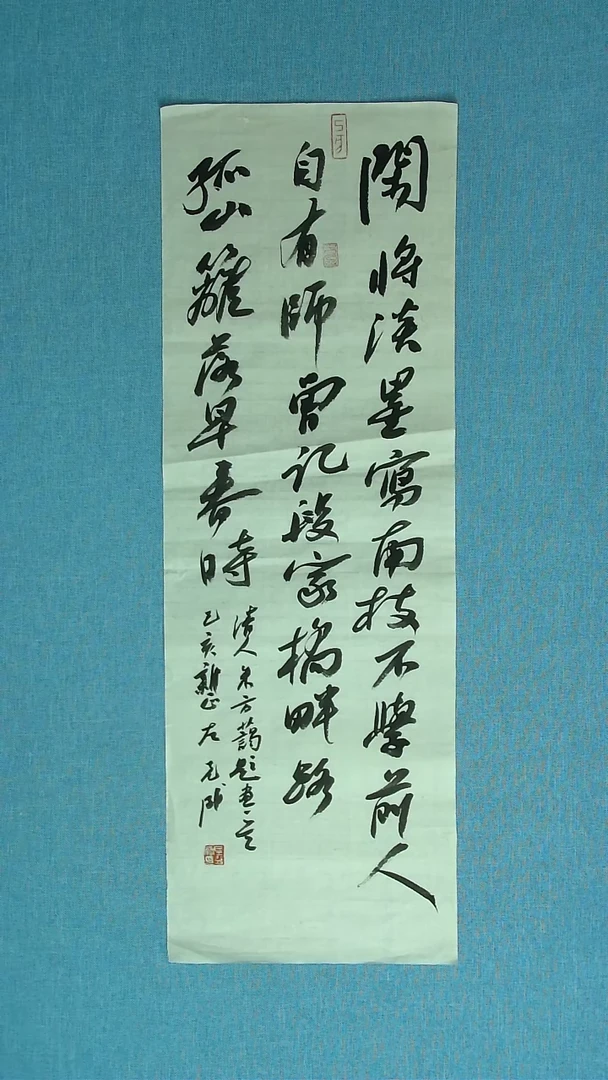 閑將淡墨寫南枝不學前人
自有師曾記段家橋畔路
孤山籬落早春時
清人朱方藹題畫
乙亥新正左